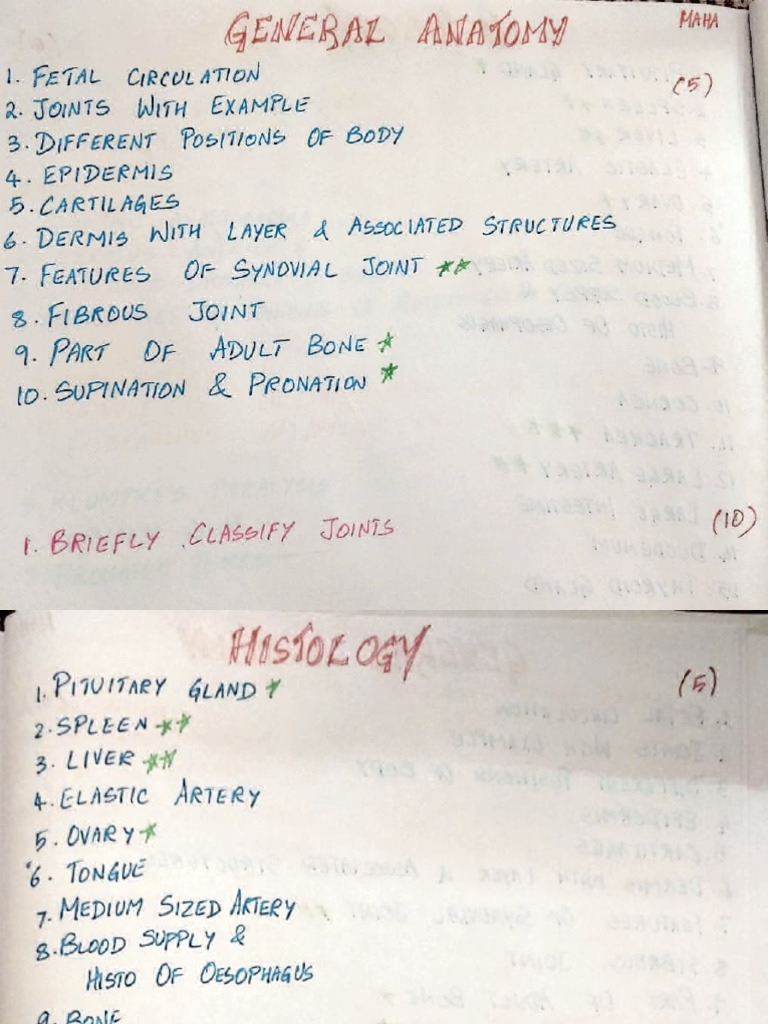 GENERAL ANATOMY
MAHA
(5)
1. FETAL CIRCULATION
2. JOINTS WITH EXAMPLE
3. DIFFERENT POSITIONS OF BODY
4. EPIDERMIS
5. CARTILAGES
6. DERMIS WITH LAYER & ASSOCIATED STRUCTURES
7. FEATURES OF SYNOVIAL JOINT **
8. FIBROUS JOINT
9. PART OF ADULT BONE *
10. SUPINATION & PRONATION *
(10)
1. BRIEFLY CLASSIFY JOINTS
HISTOLOGY
(5)
1. PITUITARY GLAND *
2. SPLEEN **
3. LIVER **
4. ELASTIC ARTERY
5. OVARY *
6. TONGUE
7. MEDIUM SIZED ARTERY
8. BLOOD SUPPLY &
HISTO OF OESOPHAGUS
9. BONE